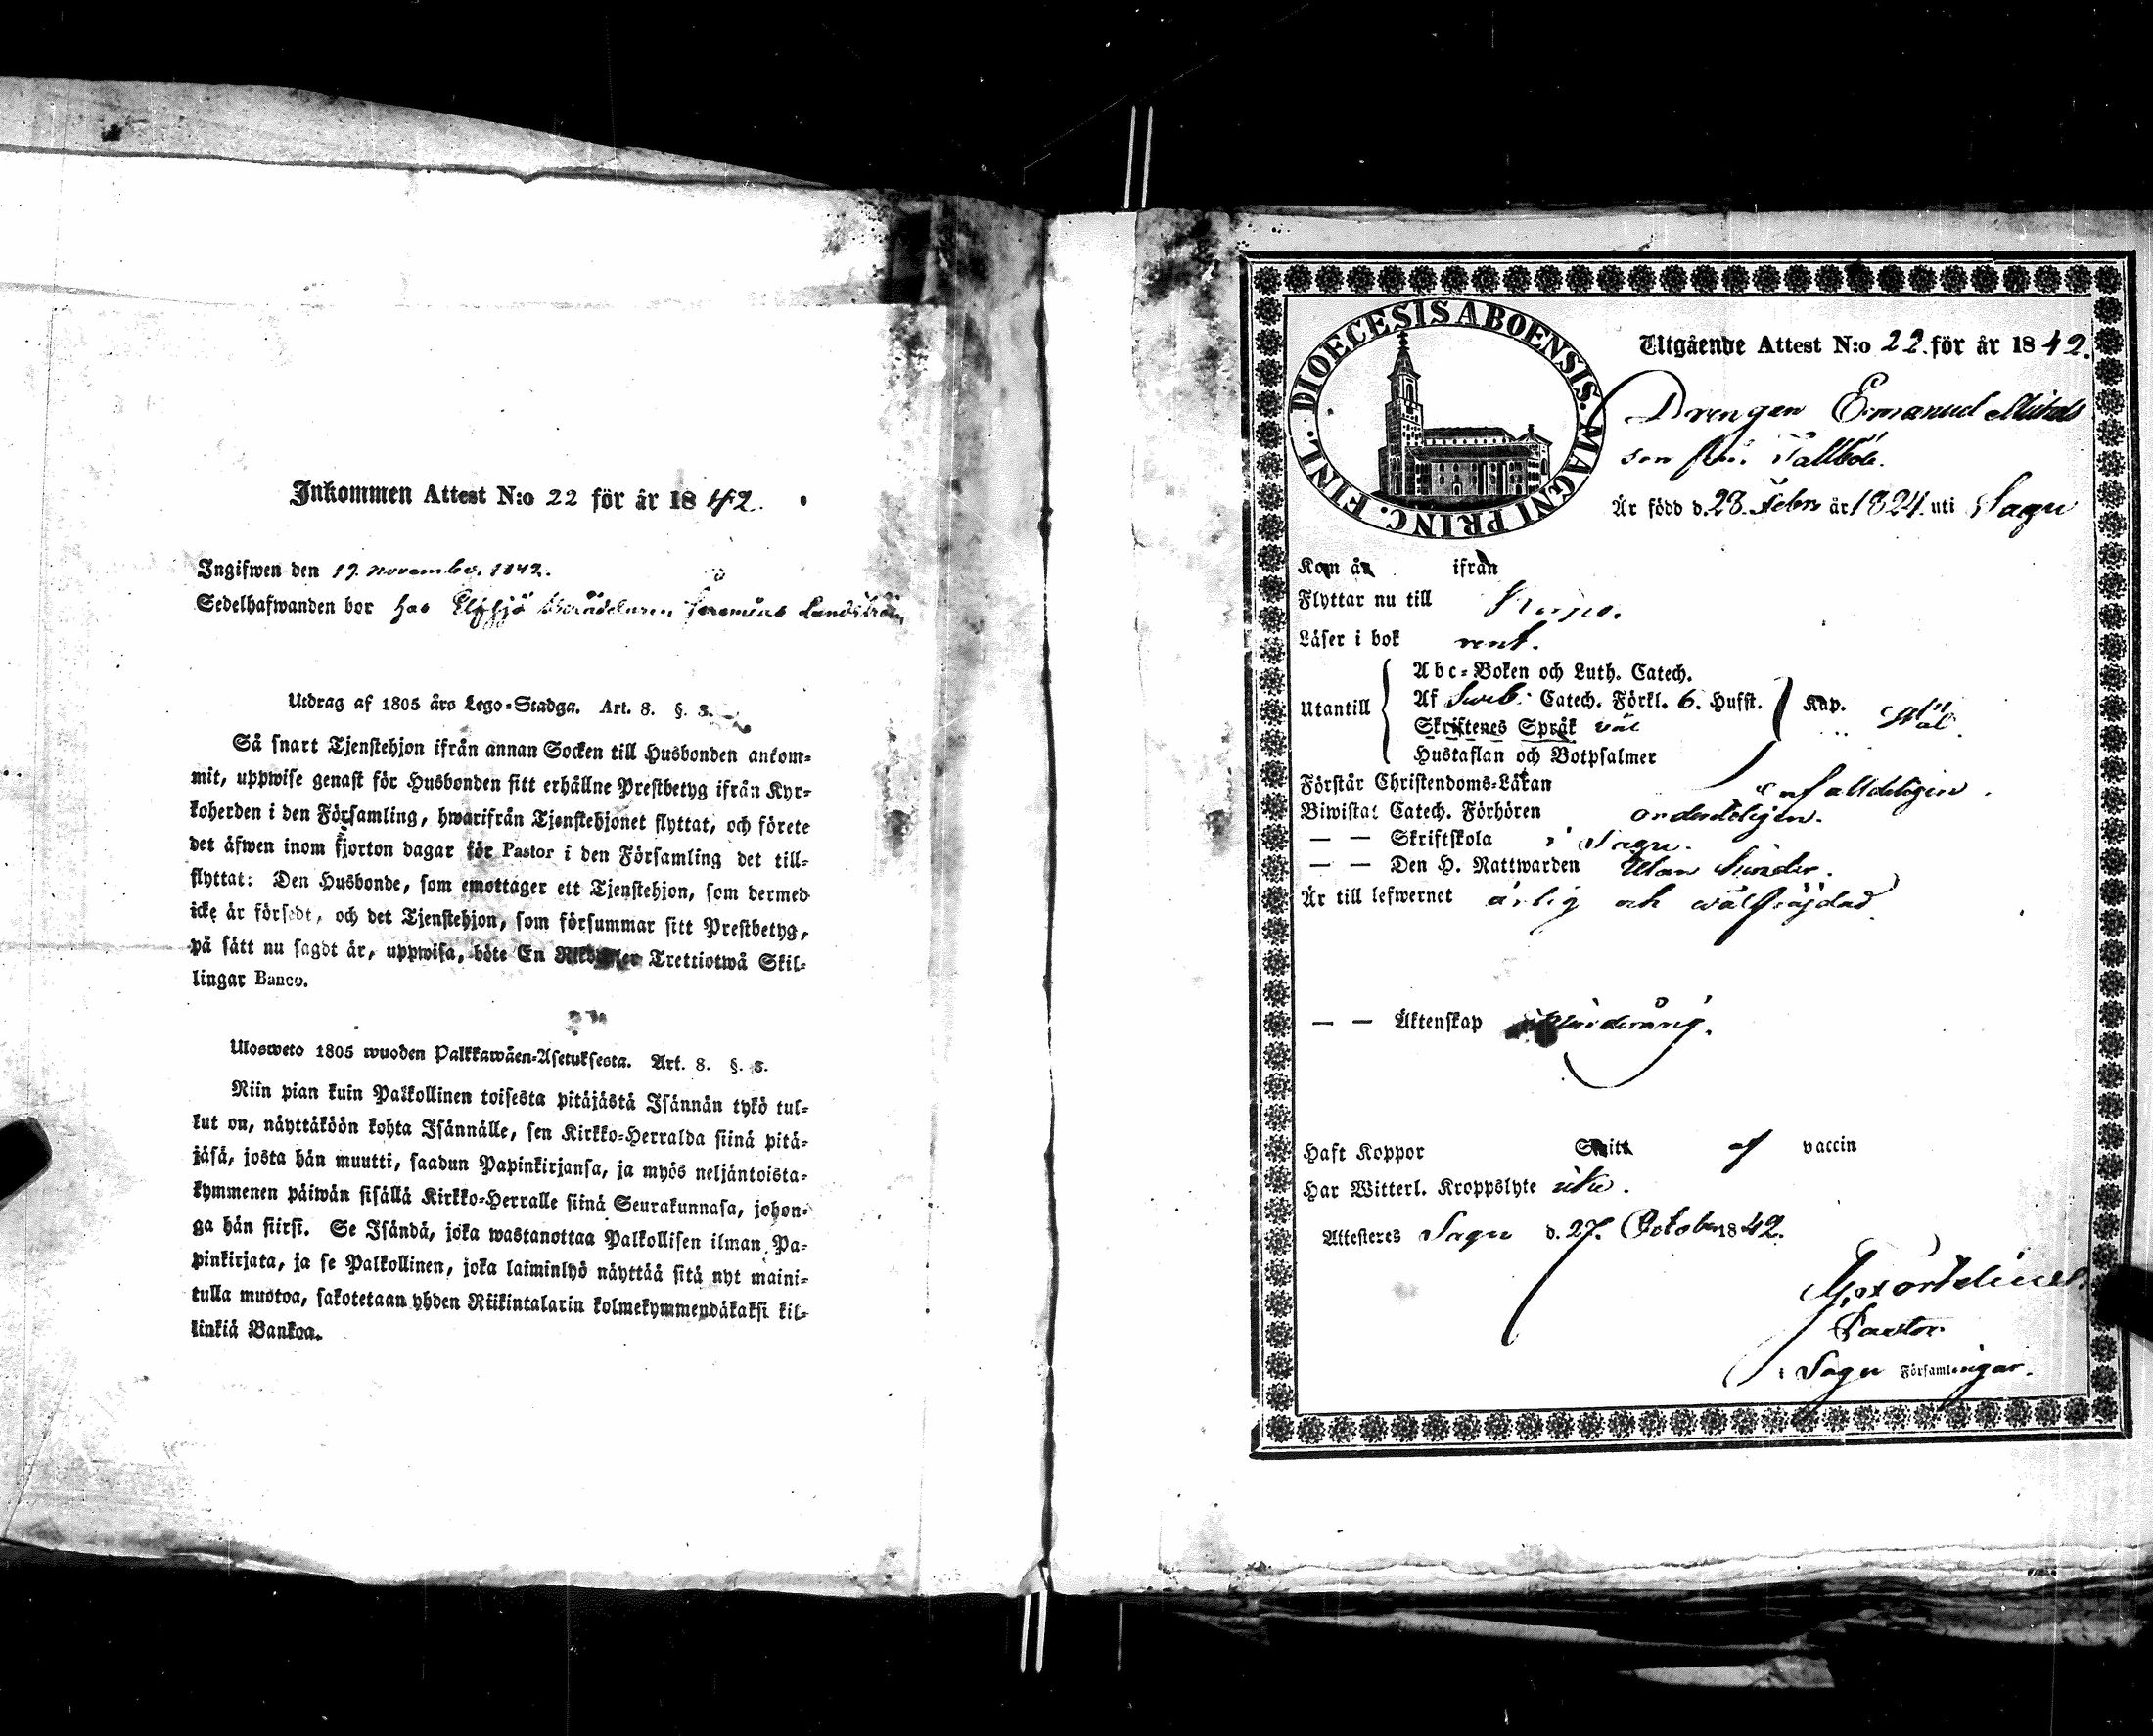 Inkommen Attest N:o 22 för år 1842.
Ingifwen den 19 novembr. 1842.
Sedelhafwanden bor hos Jeremias Lundström
Utdrag af 1805 års Lego-Stadga. Art. 8. §. 3.
Så snart Tjenstehjon ifrån annan Socken till Husbonden ankom-
mit, uppwise genast för Husbonden sitt erhållne Prestbetyg ifrån Kyr-
koherden i den Församling, hwarifrån Tjenstehjonet flyttat, och förete
det äfwen inom fjorton dagar för Pastor i den Församling det till-
flyttat: Den Husbonde, som emottager ett Tjenstehjon, som dermed
icke är försedt, och det Tjenstehjon, som försummar sitt Prestbetyg,
på sätt nu sagdt är, uppwisa, böte En Riksdaler Trettiotwå Skil-
lingar Banco.
Ulosweto 1805 wuoden Palkkawäen-Asetuksesta. Art. 8. §. 3.
Niin pian kuin Palkollinen toisesta pitäjästä Isännän tykö tul-
kut on, näyttäköön kohta Isännälle, sen Kirkko-Herralda siinä pitä-
jäsä, josta hän muutti, saadun Papinkirjansa, ja myös neljäntoista-
kymmenen päiwän sisällä Kirkko-Herralle siinä Seurakunnasa, johon-
ga hän siirsi. Se Isändä, joka wastanottaa Palkollisen ilman Pa-
pinkirjata, ja se Palkollinen, joka laiminlyö näyttää sitä nyt maini-
tulla muotoa, sakotetaan yhden Riikintalarin kolmekymmendäkaksi kil-
linkiä Bankoa.
DIOECESIS ABOENSIS. MAGNI PRINC. FINL.
Utgående Attest N:o 22. för år 1842.
Drengen Emanuel Michels
son frå. Tallböle.
Är född d. 23. Febr. år 1824. uti Sagu
Kom år ifrån
Flyttar nu till Korpo.
Läser i bok rent.
Utantill
Abc-Boken och Luth. Catech.
Af Sveb. Catech. Förkl. 6. Hufst.
Skriftenes Språk väl
Hustaflan och Botpsalmer
Kap. Wäl.
Förstår Christendoms-Läran enfalldeligen.
Biwistat Catech. Förhören ordenteligen.
— — Skriftskola i Sagu.
— — Den H. Nattwarden Utan hinder.
Är till lefwernet ärlig och wälfräjdad
— — Äktenskap
Haft Koppor Smitt af vaccin
Har Witterl. Kroppslyte icke.
Attesteres Sagu d. 27. October 1842.
Pastor
i Sagu Församlingar.